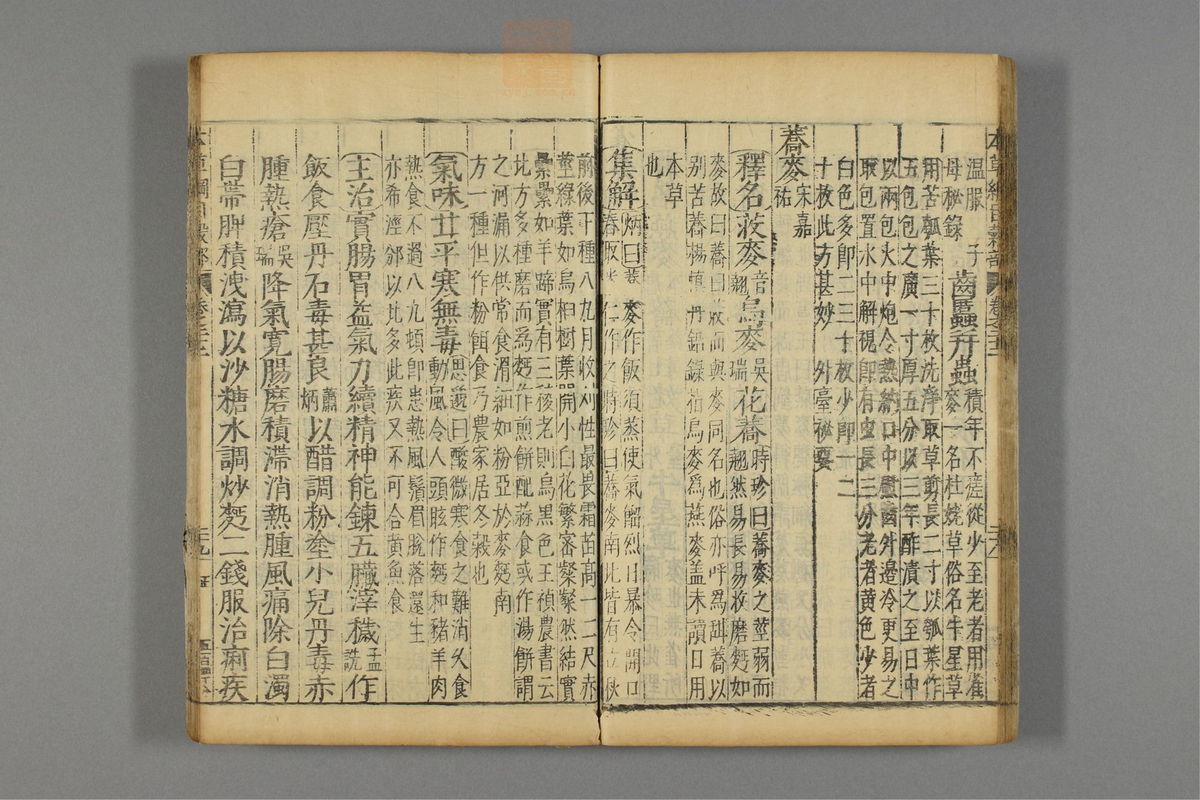 温服 子 齒䘌並蟲積年不瘥從少至老者用雀
母秘錄 麥一名杜姥草俗名牛星草
用苦瓠葉三十枚洗淨取草剪長二寸以瓠葉作
五包包之廣一寸厚五分以三年酢漬之至日中
以兩包火中炮令熱納口中熨齒外邊冷更易之
取包置水中解視即有蟲長三分老者黄色少者
白色多即二三十枚少即一二
十枚此方甚妙 外臺秘要
蕎麥宋嘉祐
釋名荍麥音翹烏麥吳瑞花蕎時珍曰蕎麥之莖弱而
翹然易長易收磨麪如
麥故曰蕎曰荍而與麥同名也俗亦呼爲甜蕎以
别苦蕎楊慎丹鉛錄指烏麥爲燕麥盖未讀日用
本草
也
集解炳曰蕎麥作飯須蒸使氣餾烈日暴令開口
舂取米仁作之時珍曰蕎麥南北皆有立秋
前後下種八九月收刈性最畏霜苗高一二尺赤
莖綠葉如烏桕樹葉開小白花繁密粲粲然結實
纍纍如羊蹄實有三稜老則烏黑色王禎農書云
北方多種磨而爲麪作煎餅配蒜食或作湯餅謂
之河漏以供常食滑細如粉亞於麥麪南
方一種但作粉餌食乃農家居冬穀也
氣味甘平寒無毒思邈曰酸微寒食之難消久食
動風令人頭眩作麪和豬羊肉
熱食不過八九頓即患熱風鬚眉脫落還生
亦希涇邠以北多此疾又不可合黄魚食
主治實腸胃益氣力續精神能鍊五臟滓穢孟詵作
飯食壓丹石毒甚良蕭炳以醋調粉塗小兒丹毒赤
腫熱瘡吳瑞降氣寛腸磨積滯消熱腫風痛除白濁
白帶脾積洩瀉以沙糖水調炒麪二錢服治痢疾